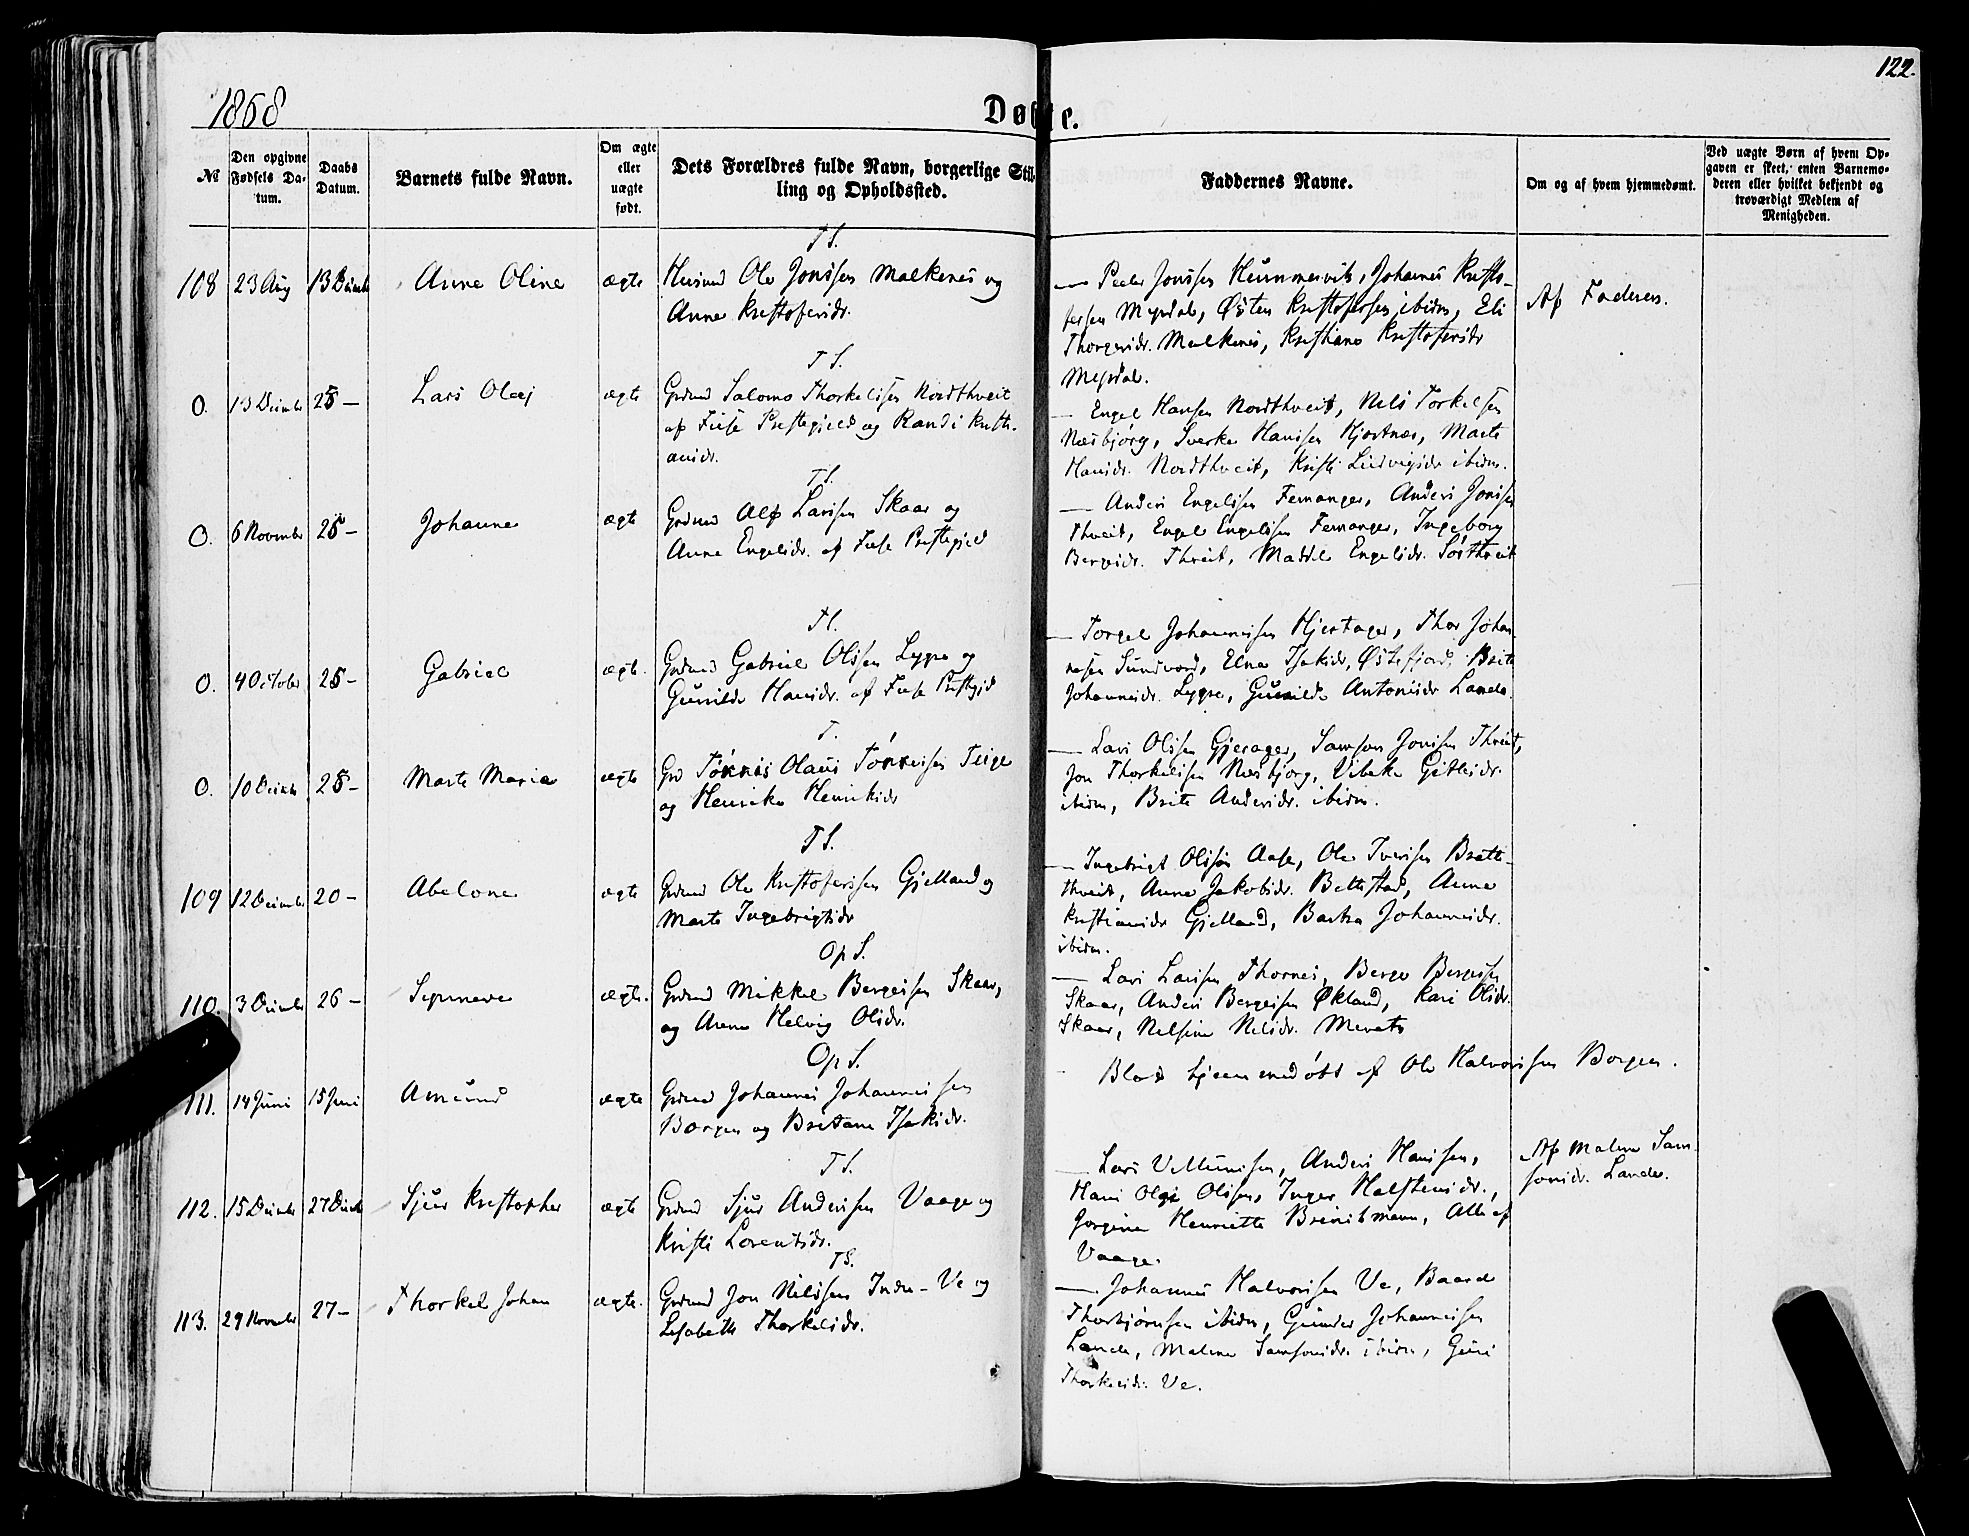 122.
1868
Døbte.
№
Den opgivne Fødsels Datum.
Daabs Datum.
Barnets fulde Navn.
Om ægte eller uægte født.
Dets Forældres fulde Navn, borgerlige Stilling og Opholdssted.
Faddernes Navne.
Om og af hvem hjemmedømt.
Ved uægte Børn af hvem Opgaven er skeet, enten Barnemoderen eller hvilket bekjendt og troværdigt Medlem af Menigheden.
T S.
108 23 Aug 13 Decmb Anne Oline ægte Husmd Ole Jonssen Malkenes og
Anne Kristofersdr.
— Peder Jonssen Hummervik, Johannes Kristo-
fersen Mysdal, Østen Kristofersen, ibidm, Eli
Thorgersdr. Malkenes, Kristiane Kristofersdr
Mysdal.
Af Faderen.
T S.
0. 13 Decmbr 25 — Lars Olai ægte Grdmd Salomo Thorkelsen Nordthveit
af Fuse Prestegield og Randi Kristi-
ansdr.
— Engel Hansen Nordthveit, Nils Torkelsen
Næsbjørg, Sverke Hanssen Hjortnæs, Marte
Hansdr. Nordthveit, Kristi Ludvigsdr ibidm.
T S.
0. 6 Novembr 25 — Johanne ægte Grdmd Alf Larssen Skaar og
Anne Engelsdr. af Fuse Prestegield
— Anders Engelssen Femanger, Anders Jonssen
Thveit, Engel Engelssen Femanger, Ingeborg
Bergesdr. Thveit, Madel Engelsdr. Sørthveit
0. 4 October 25 — Gabriel ægte. Grdmd Gabriel Olssen Lygre og
Gunilde Hansdr. af Fuse Prestegjd
— Torgel Johannessen Hjertager, Thor Johan-
nesen Sundvord, Elna Isaksdr, Østefjord, Brite
Johannesdr. Lygre, Gunilde Antonsdr Lande.
T.
0. 10 Decmbr 25 — Marte Maria ægte Grd Tønnes Olaus Tønnessen Teige
og Henrike Henriksdr
— Lars Olssen Gjerager, Samson Jonssen Thveit,
Jon Thorkelssen Næsbjørg, Vibeke
ibidm, Brite Andersdr. ibidm.
T S.
109 12 Decmbr 20 — Abelone ægte Grdmd Ole Kristofersen Gjelland og
Marte Ingebrigtsdr
— Ingebrigt Olssøn Aase, Ole Iverssen Bratt-
thveit, Anne Jakobsdr. Bellestad, Anne
Kristiansdr Gjelland, Barbra Johannesdr.
ibidm.
Op S.
110. 3 Decmbr 26 — Synneve ægte. Grdmd Mikkel Bergessen Skaar,
og Anne Helvig Olsdr.
— Lars Larssen Thornes, Berge Bergessen
Skaar, Anders Bergessen Økland, Kari Olsdr.
Skaar, Nilsine Nilsdr.
Op S.
111. 14 Juni 15 Juni Amund ægte Grdmd Johannes Johannessen
Borgen og Britane Isaksdr.
Blev hjemmedøbt af Ole Halvorssen Borgen.
T S.
112. 15 Decmbr 27 Decmb Sjur Kristopher ægte Grdmd Sjur Anderssen Vaage og
Kristi Lorentsdr.
— Lars Vellumssen, Anders Hanssen,
Hans Olai Olssen, Inger Halstensdr.,
Jorgine Henriette Breitsmann, Alle af
Vaage.
Af Malene Sam-
sonsdr. Lande.
T S.
113. 29 Novmbr 27 — Thorkel Johan ægte. Grdmd Jon Nilssen Indre-Ve og
Lisabeth Thorkelsdr.
— Johannes Halvorssen Ve, Baard
Thorbjørnsen ibidm, Gunder Johannessen
Lande, Malene Samsonsdr. ibidm, Guri
Thorkelsdr. Ve.